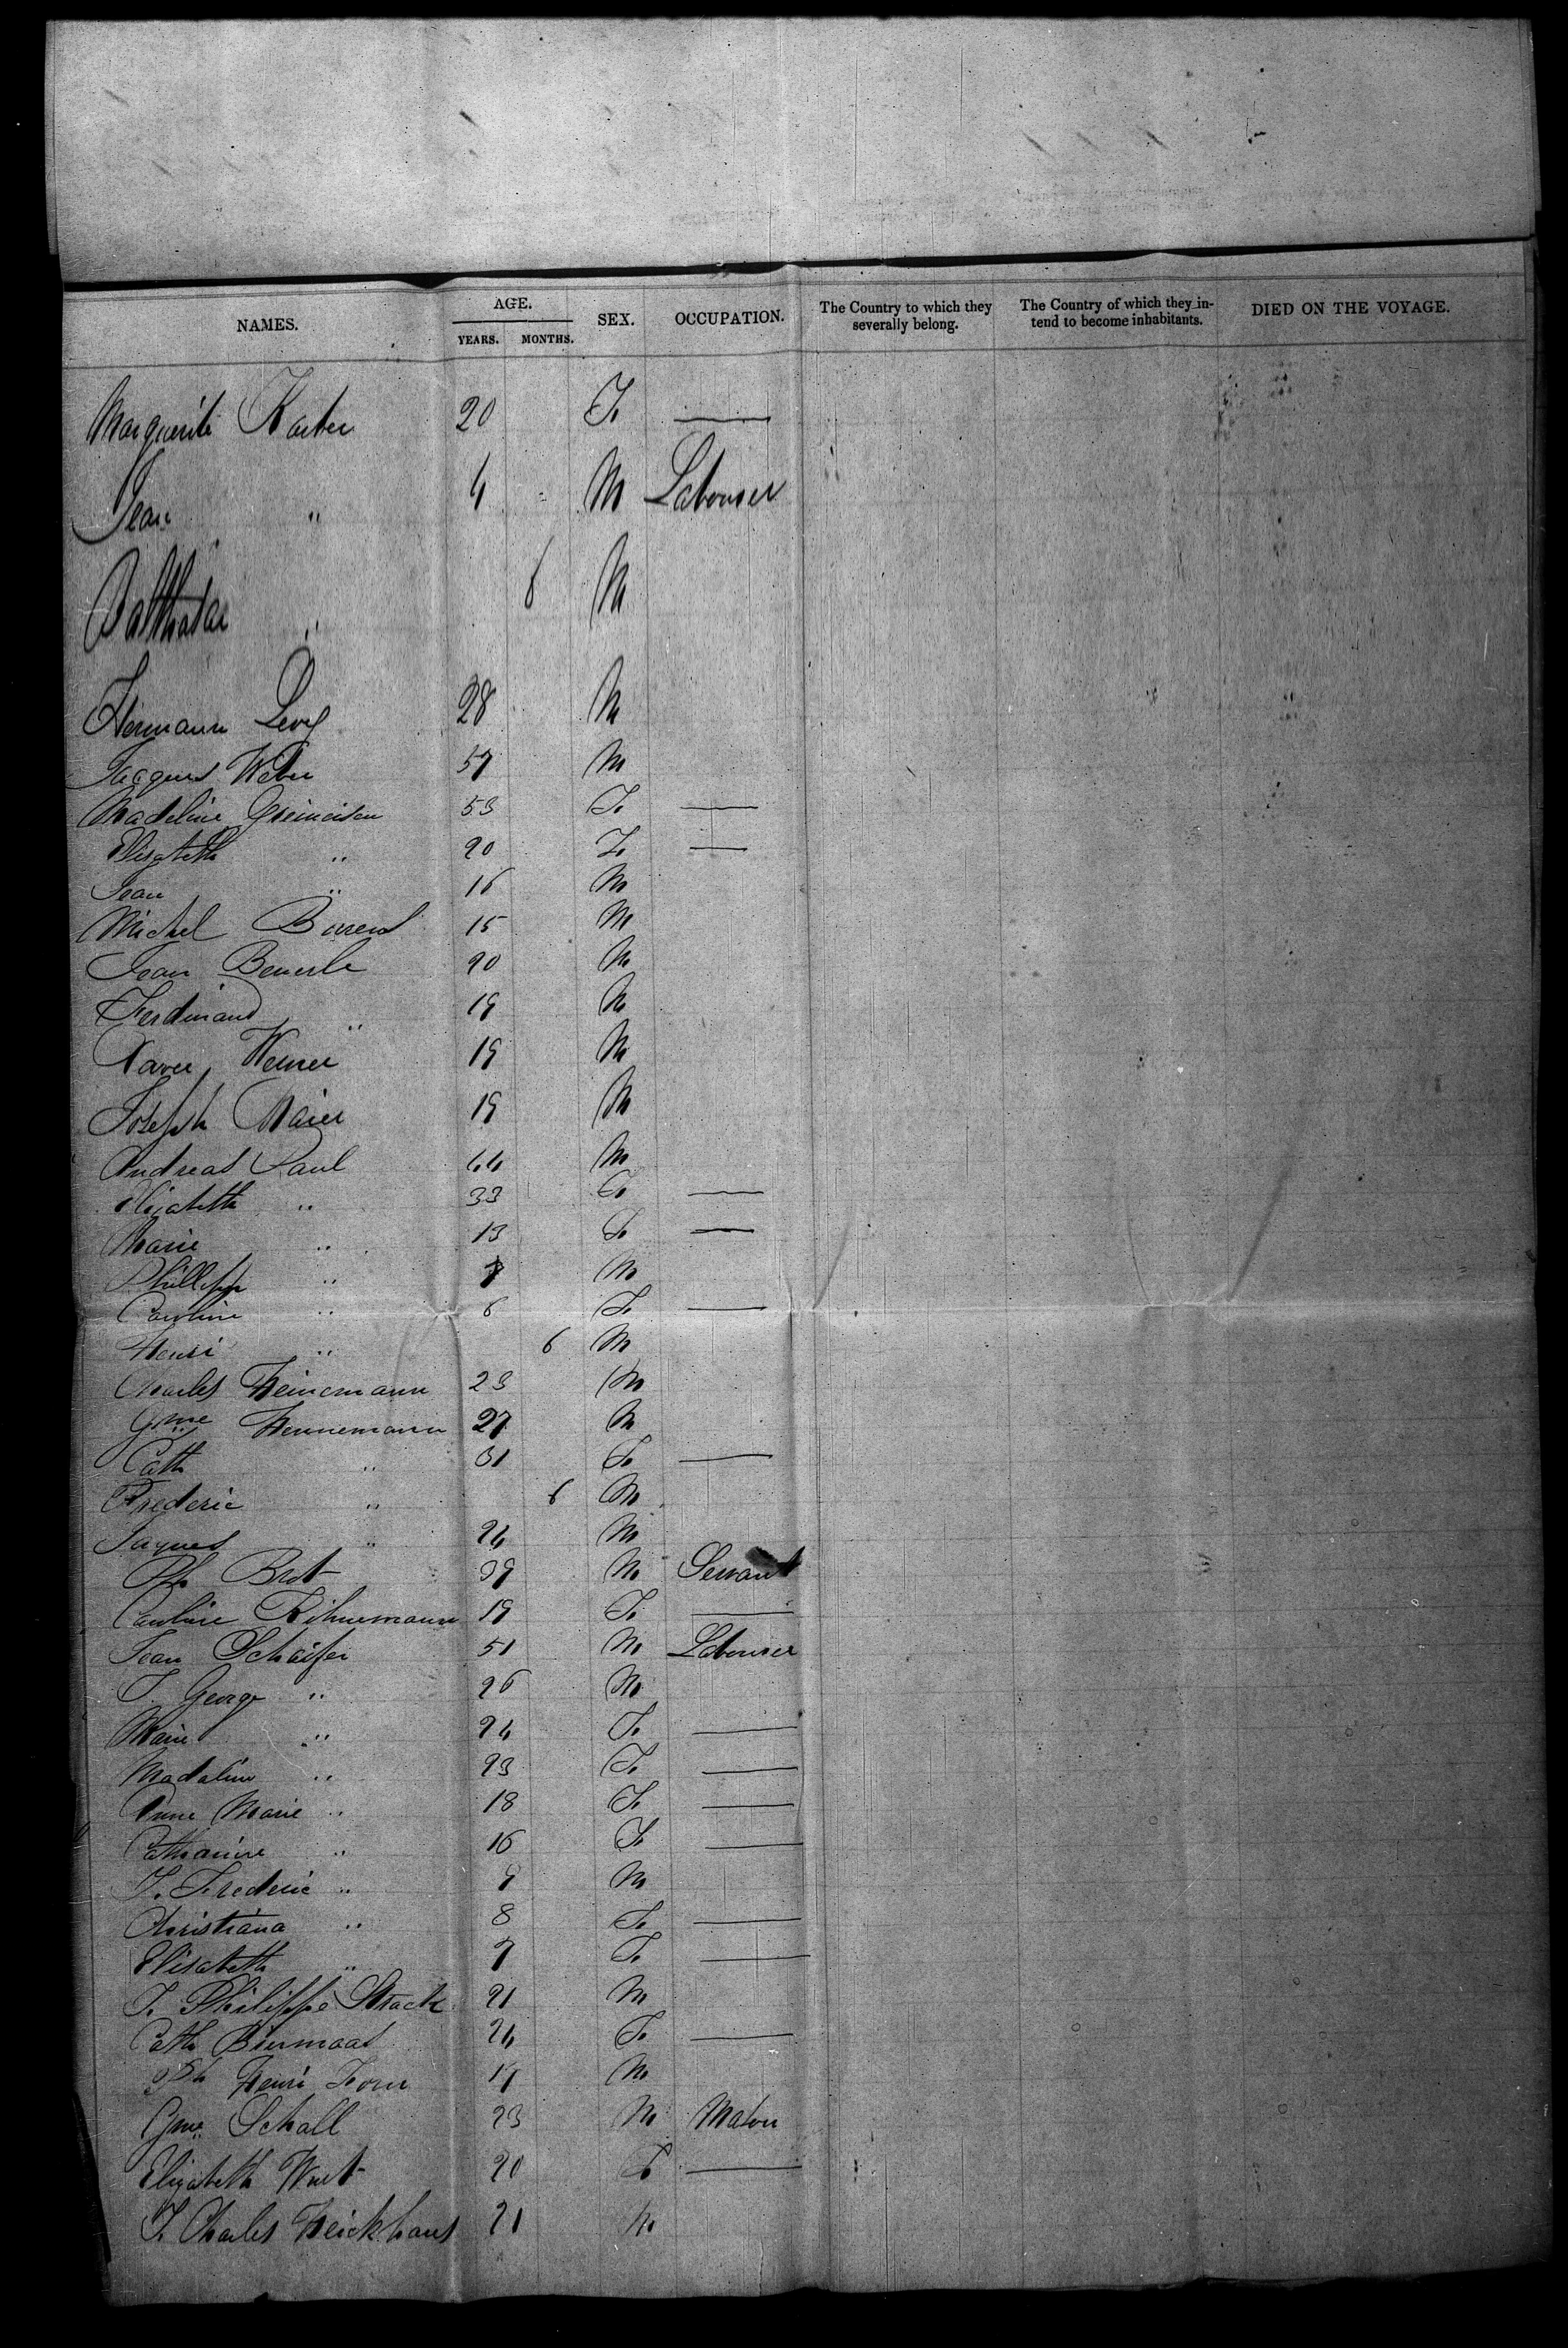 NAMES. AGE. YEARS. MONTHS. SEX. OCCUPATION. The Country to which they severally belong. The Country of which they intend to become inhabitants. DIED ON THE VOYAGE.
Marguerite Karber 20 F. —
Jean " 4 M Labourer
Balthasar " 6 M
Hermann Levy 28 M
Jacques Weber 57 M
Madeline 53 F. —
Elisabeth " 20 F. —
Jean " 16 M
Michel 15 M
Jean Beuerle 20 M
Ferdinand " 19 M
Xaver Werner 19 M
Joseph Maier 19 M
Andreas Paul 44 M
Elizabeth " 33 F. —
Marie " 13 F. —
Phillipp " 7 M
Caroline " 6 F. —
Henri " 6 M
Charles Heinemann 23 M
Gme Hennemann 27 M
Cath " 31 F. —
Frederic " 6 M
Jaques " 24 M
Ph Brot 39 M Servant
Caroline 19 F. —
Jean Schaifer 51 M Labourer
J. George " 26 M
Marie " 24 F. —
Madaline " 23 F. —
Anne Marie " 18 F. —
Catharine " 16 F. —
J. Frederic " 9 M
Christiana " 8 F. —
Elisabeth " 7 F. —
J. Philippe Strack 21 M
Cath Biermaas 24 F. —
Ph Henri Horn 19 M
Gme Schall 23 M Mason
Elizabeth Wust 20 F —
J. Charles Heickhaus 21 M